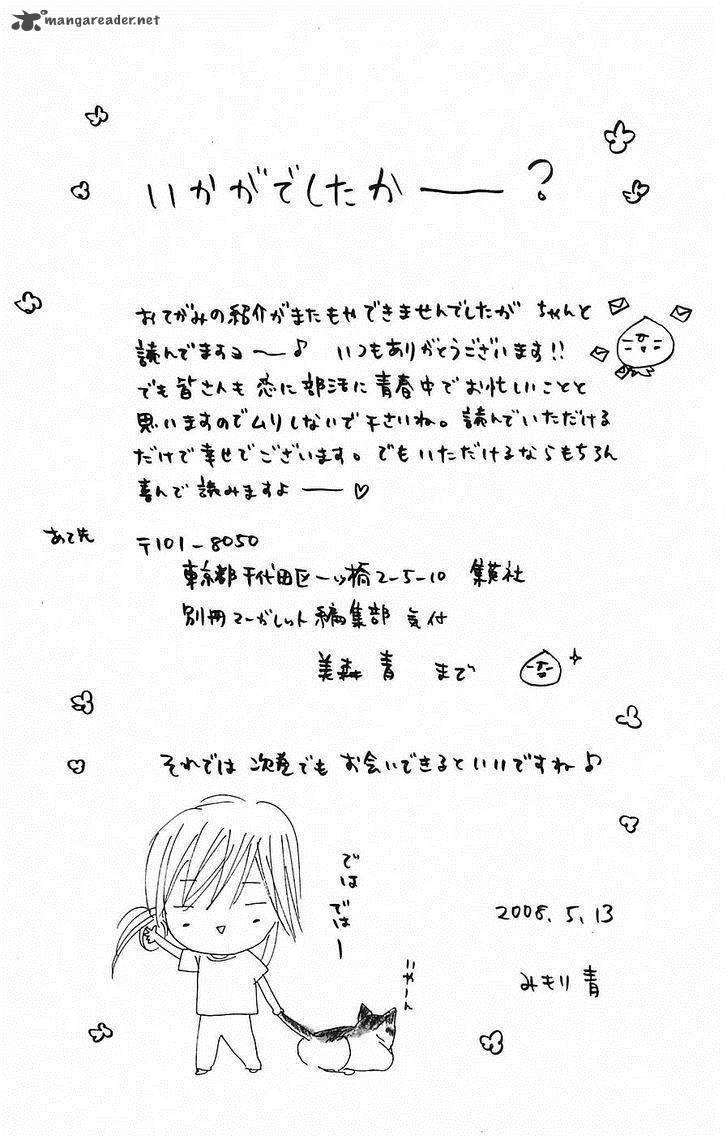 mangareader.net
いかがでしたかー?
おてがみの紹介がまたもやできませんでしたが ちゃんと
読んでますヨ〜♪ いつもありがとうございます!!
でも皆さんも恋に部活に青春中でお忙しいことと
思いますのでムリしないで下さいね。読んでいただける
だけで幸せでございます。でもいただけるならもちろん
喜んで読みますよー♡
あて先
〒101-8050
東京都千代田区一ツ橋2-5-10 集英社
別冊マーガレット編集部 気付
美森 青 まで
それでは次巻でもお会いできるといいですね♪
ではではー
いやーん
2008.5.13
みもり青